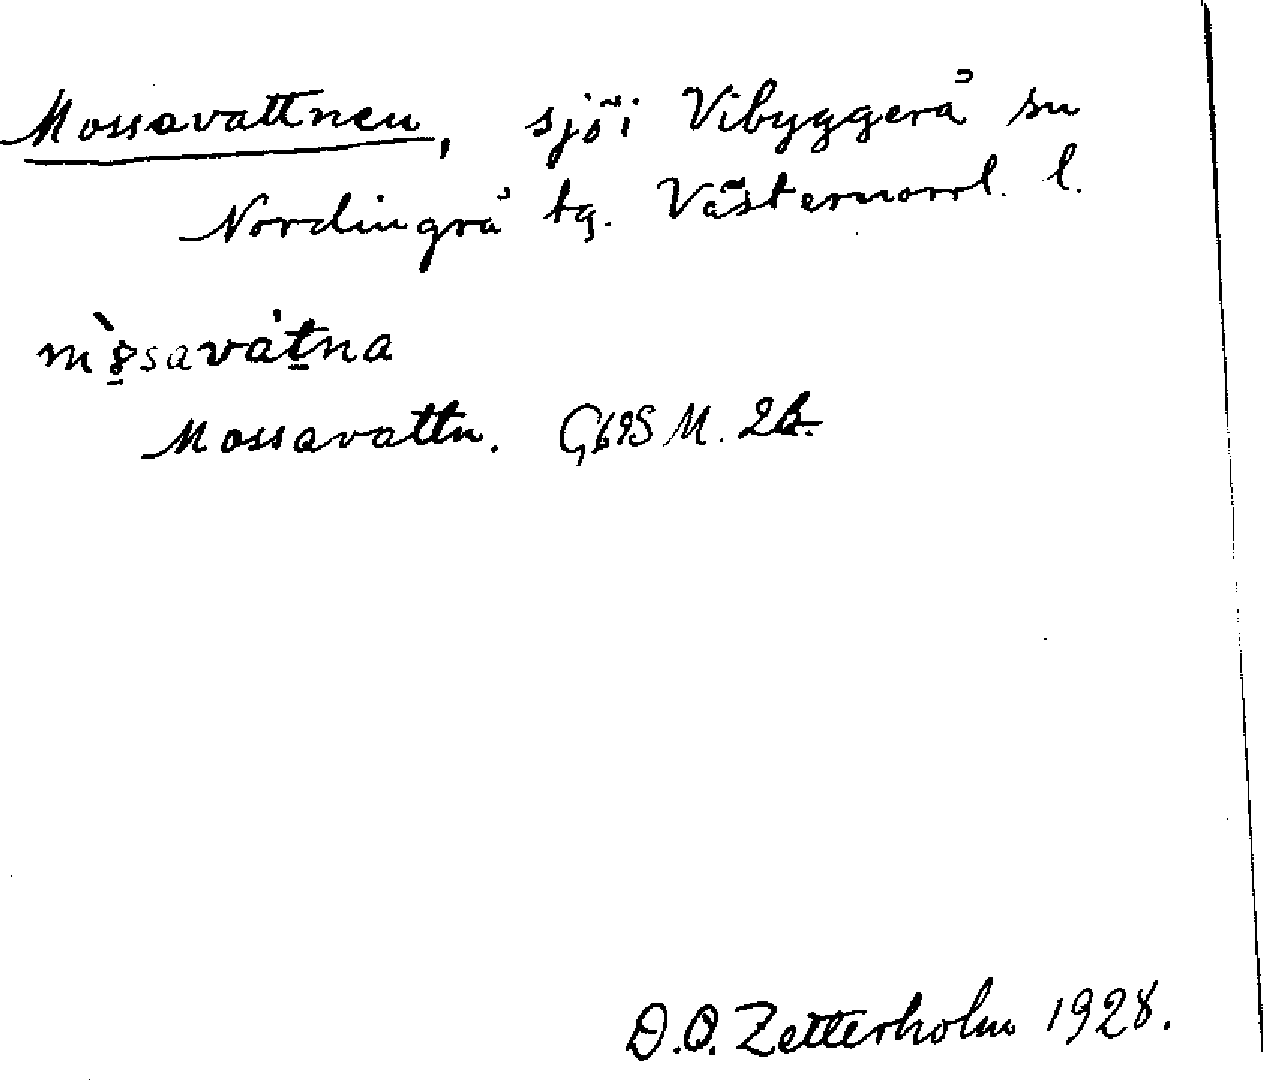 Mossavattnen, sjö i Vibyggerå sn
Nordingrå tg. Västernorrl. l.
mòsavátna
Mossavattn. G69S M.
D.O. Zetterholm 1928.